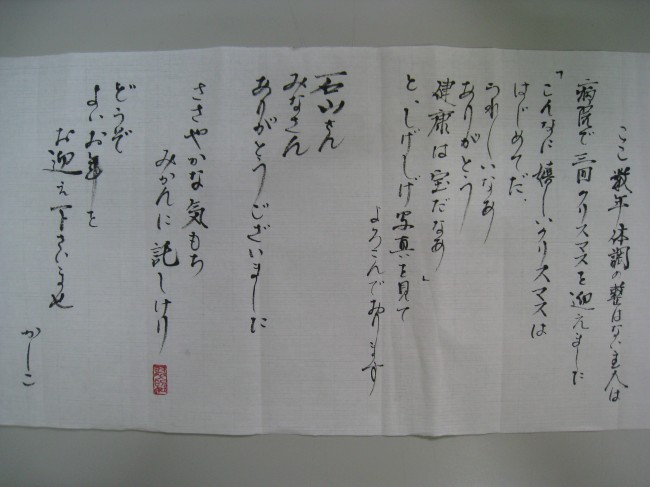 ここ数年体調の整はない主人は
病院で三回クリスマスを迎えました
「こんなに嬉しいクリスマスは
はじめてだ、
うれしいなあ
ありがとう
健康は宝だなあ」
と、しげしげ写真を見て
よろこんでおります
石山さん
みなさん
ありがとうございました
ささやかな気もち
みかんに託しけり
どうぞ
よいお年を
お迎え下さいませ
かしこ